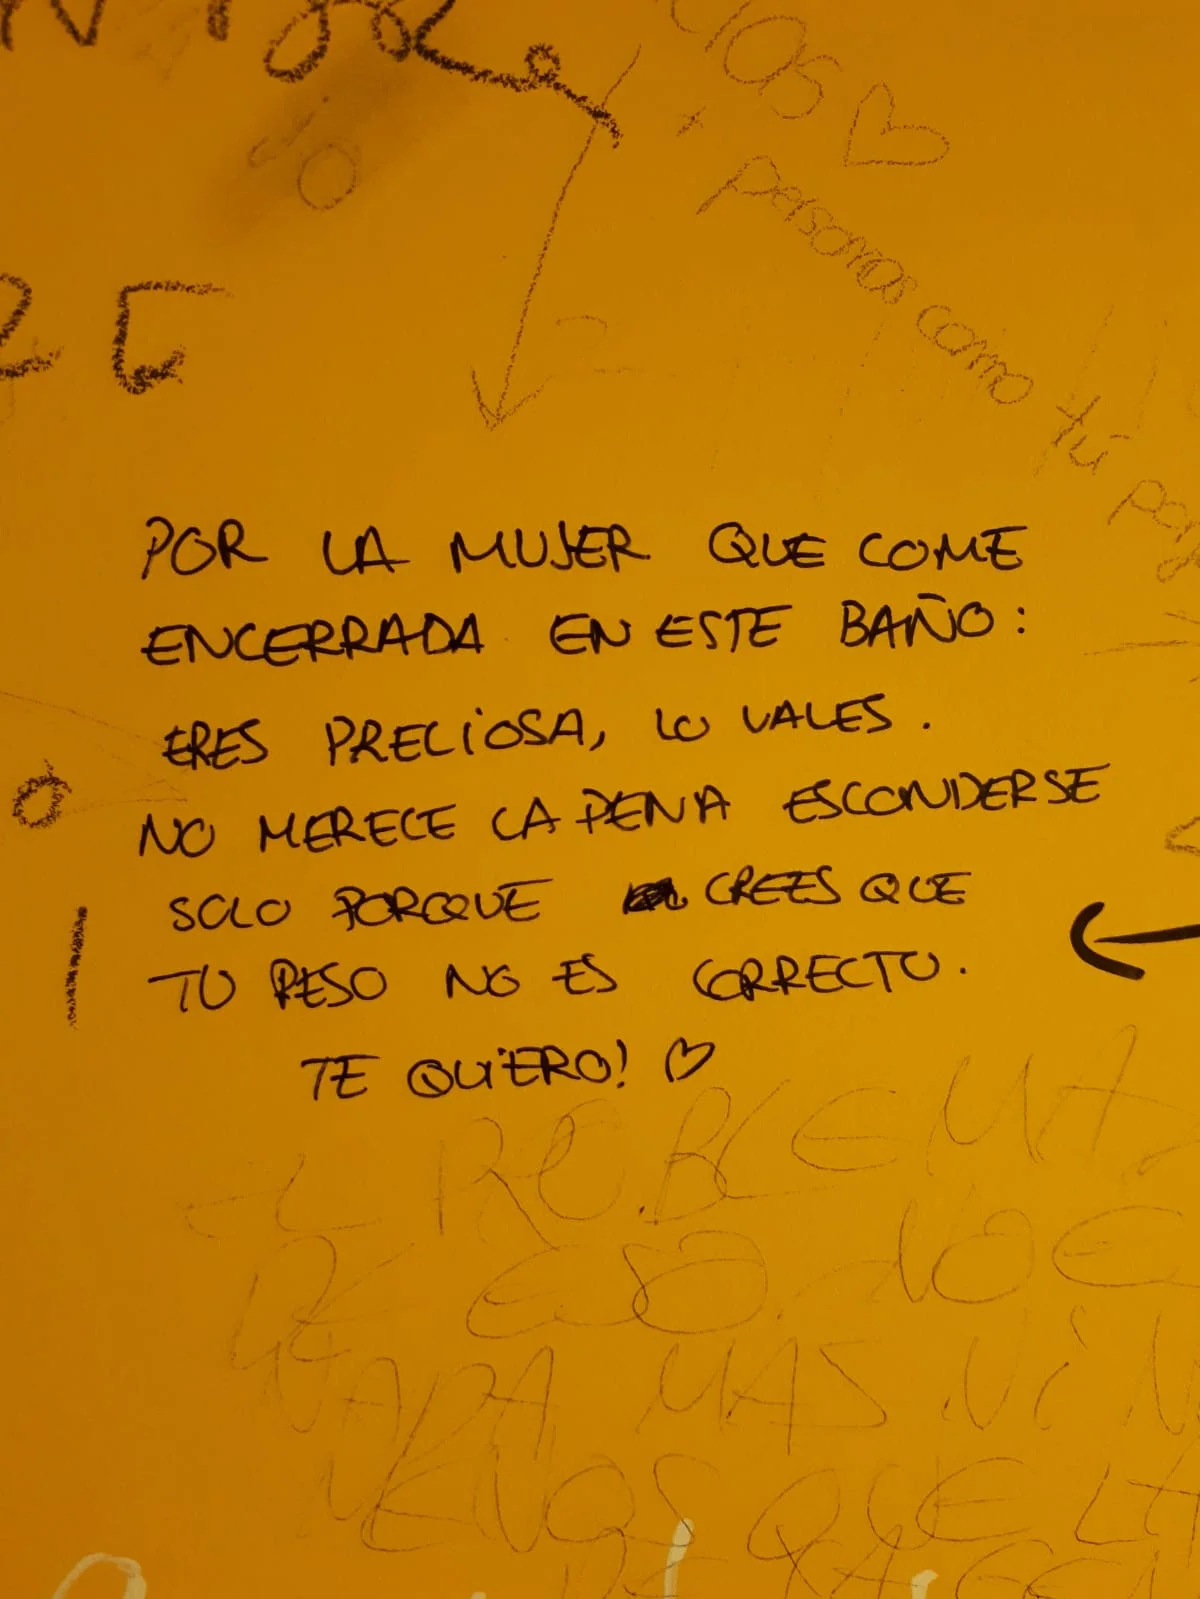 OS ♡
personas como tú
POR LA MUJER QUE COME
ENCERRADA EN ESTE BAÑO:
ERES PRECIOSA, LO VALES.
NO MERECE LA PENA ESCONDERSE
SOLO PORQUE CREES QUE
TU PESO NO ES CORRECTO.
TE QUIERO! ♡
EL PROBLEMA
DE ESO NO E
NADA MAS NI N
MENOS QUE LA
DE